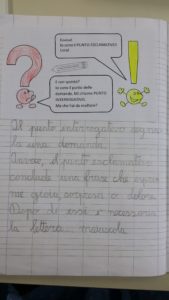 Evviva!
Io sono il PUNTO ESCLAMATIVO
E non spaventi?
Io sono il punto delle
domande. MI chiamo PUNTO
INTERROGATIVO.
Ma che hai da esultare?
Il punto interrogativo segna
la una domanda.
Invece, il punto esclamativo
conclude una frase che espri
me gioia, sorpresa o dolore.
Dopo di essi è necessaria
la lettera maiuscola.